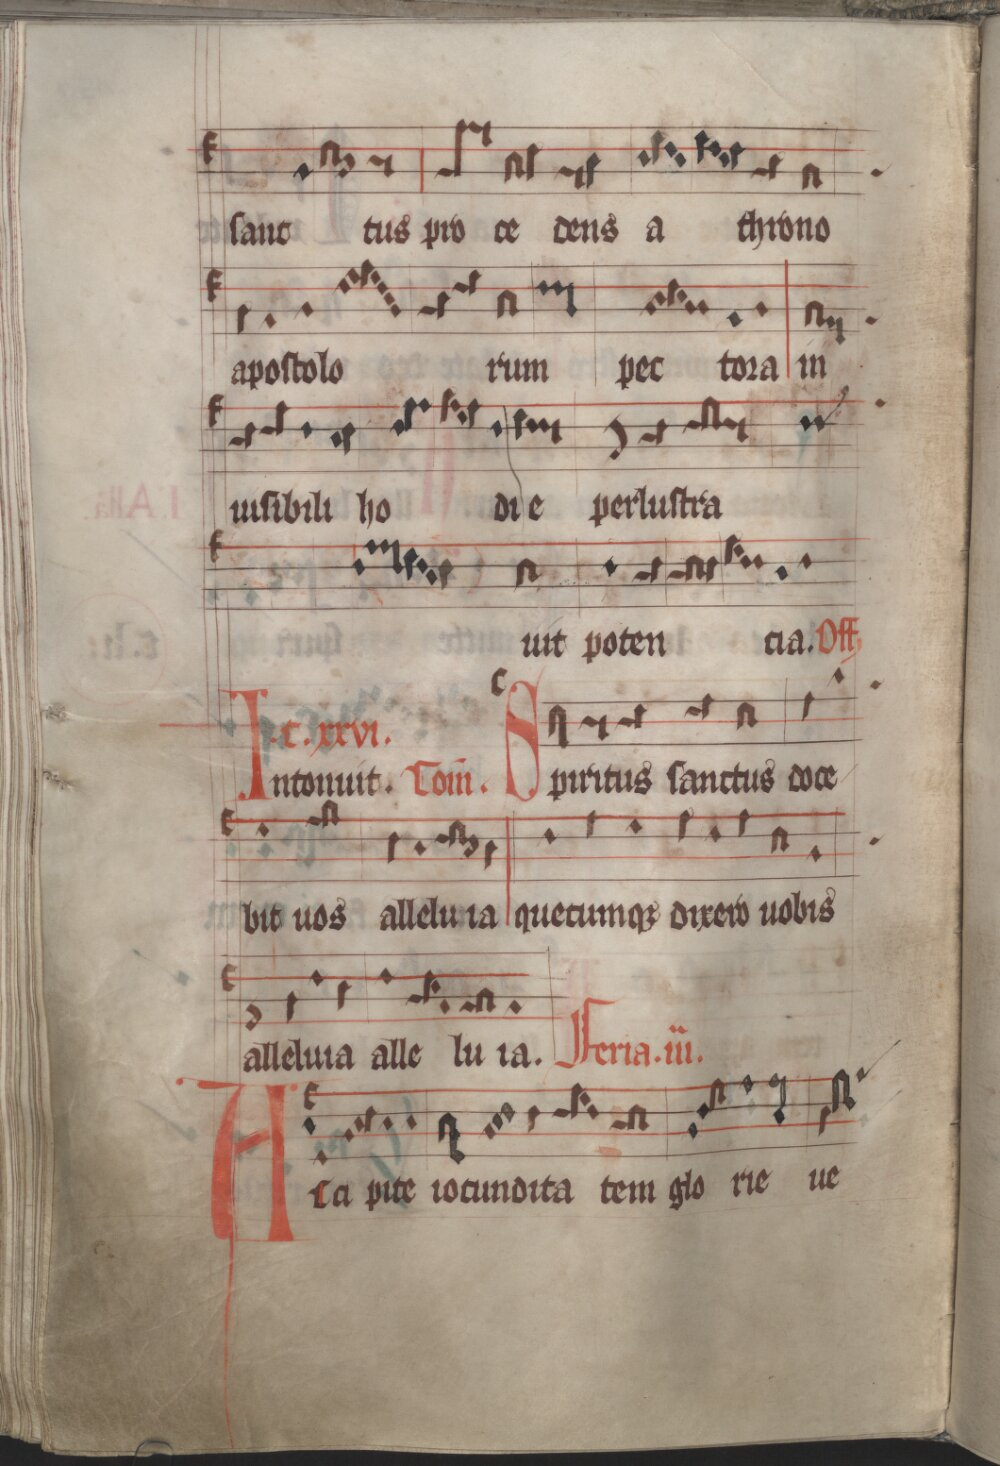 sanc tus pro ce dens a throno
apostolo rum pec tora in
uisibili ho di e perlustra
uit poten cia. Off
c. xxvi.
Intonuit. Com. Spiritus sanctus doce
bit uos alleluia quecumqz dixero uobis
alleluia alle lu ia. Feria. iii.
Acci pite iocundita tem glo rie ue